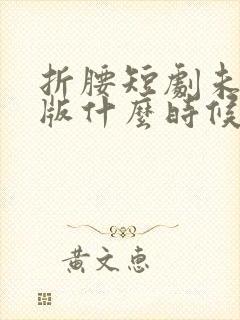 折腰短劇未
版什麼時候
黃文惠